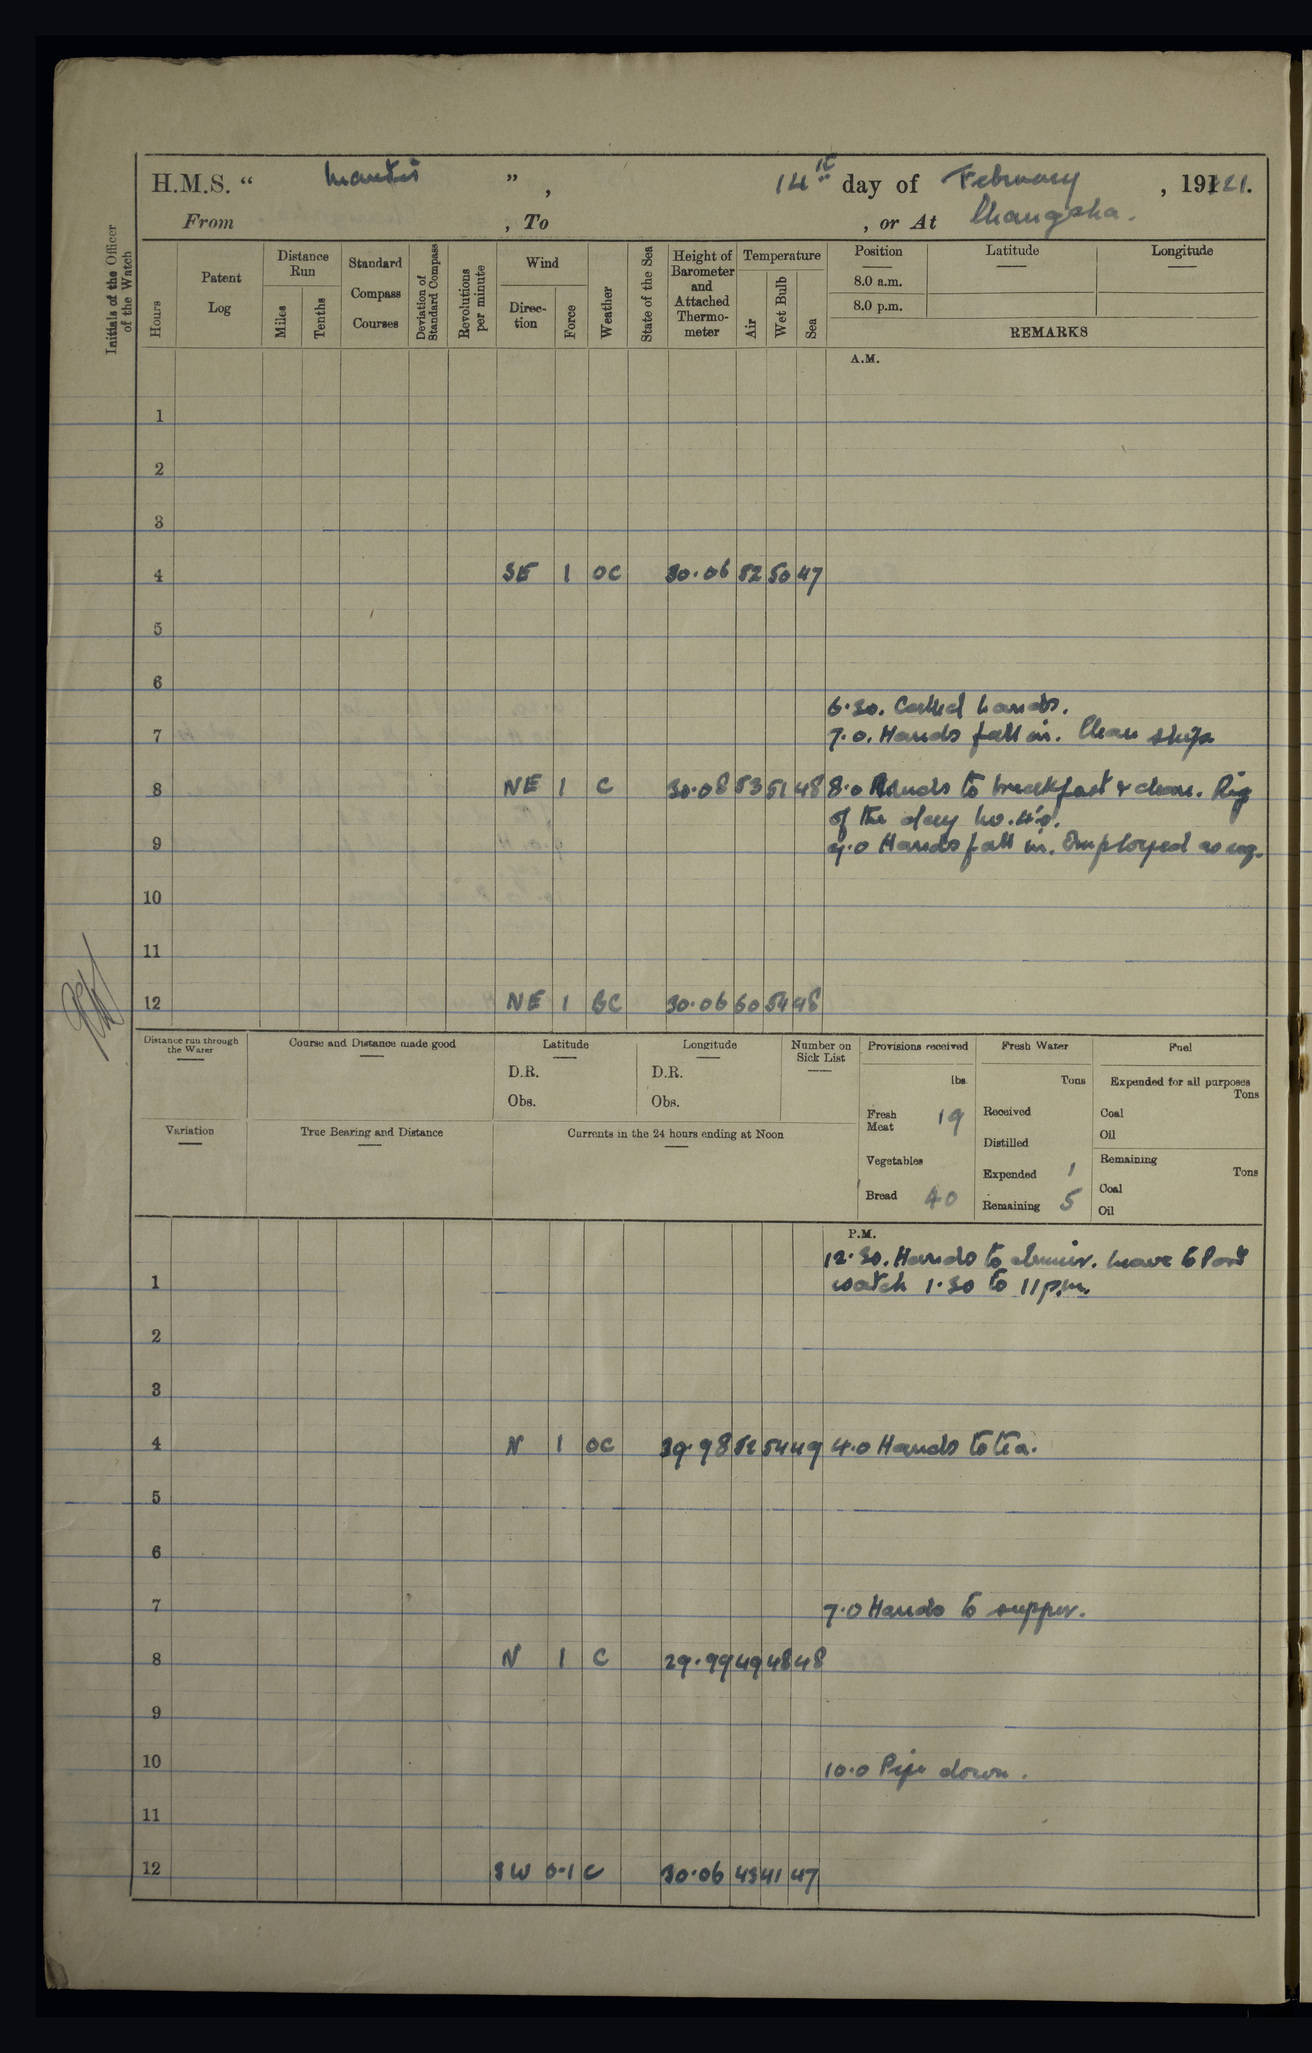 H.M.S. “ Mantis ” , 14th day of February , 19121.
From , To , or At Changsha.
Initials of the Officer of the Watch
Hours
Patent Log
Distance Run
Miles
Tenths
Standard Compass Courses
Deviation of Standard Compass
Revolutions per minute
Wind
Direction
Force
Weather
State of the Sea
Height of Barometer and Attached Thermometer
Temperature
Air
Wet Bulb
Sea
Position
8.0 a.m.
8.0 p.m.
Latitude
Longitude
REMARKS
A.M.
1
2
3
4 SE 1 OC 30.06 52 50 47
5
6
6.30. Called hands.
7 7.0. Hands fall in. Clean ship
8 NE 1 C 30.08 53 51 48 8.0 Hands to breakfast & clean. Rig
of the day No. 4's.
9 9.0 Hands fall in. Employed as req.
10
11
12 NE 1 BC 30.06 60 54 48
Distance run through the Water
Course and Distance made good
Latitude
D.R.
Obs.
Longitude
D.R.
Obs.
Number on Sick List
Provisions received
lbs.
Fresh Meat 19
Vegetables
Bread 40
Fresh Water
Tons
Received
Distilled
Expended 1
Remaining 5
Fuel
Expended for all purposes
Tons
Coal
Oil
Remaining
Tons
Coal
Oil
Variation
True Bearing and Distance
Currents in the 24 hours ending at Noon
P.M.
12.30. Hands to dinner. Leave to Port
1 watch 1.30 to 11 p.m.
2
3
4 N 1 OC 29.98 52 54 49 4.0 Hands to tea.
5
6
7 7.0 Hands to supper.
8 N 1 C 29.99 49 48 48
9
10 10.0 Pipe down.
11
12 SW 0-1 C 30.06 43 41 47